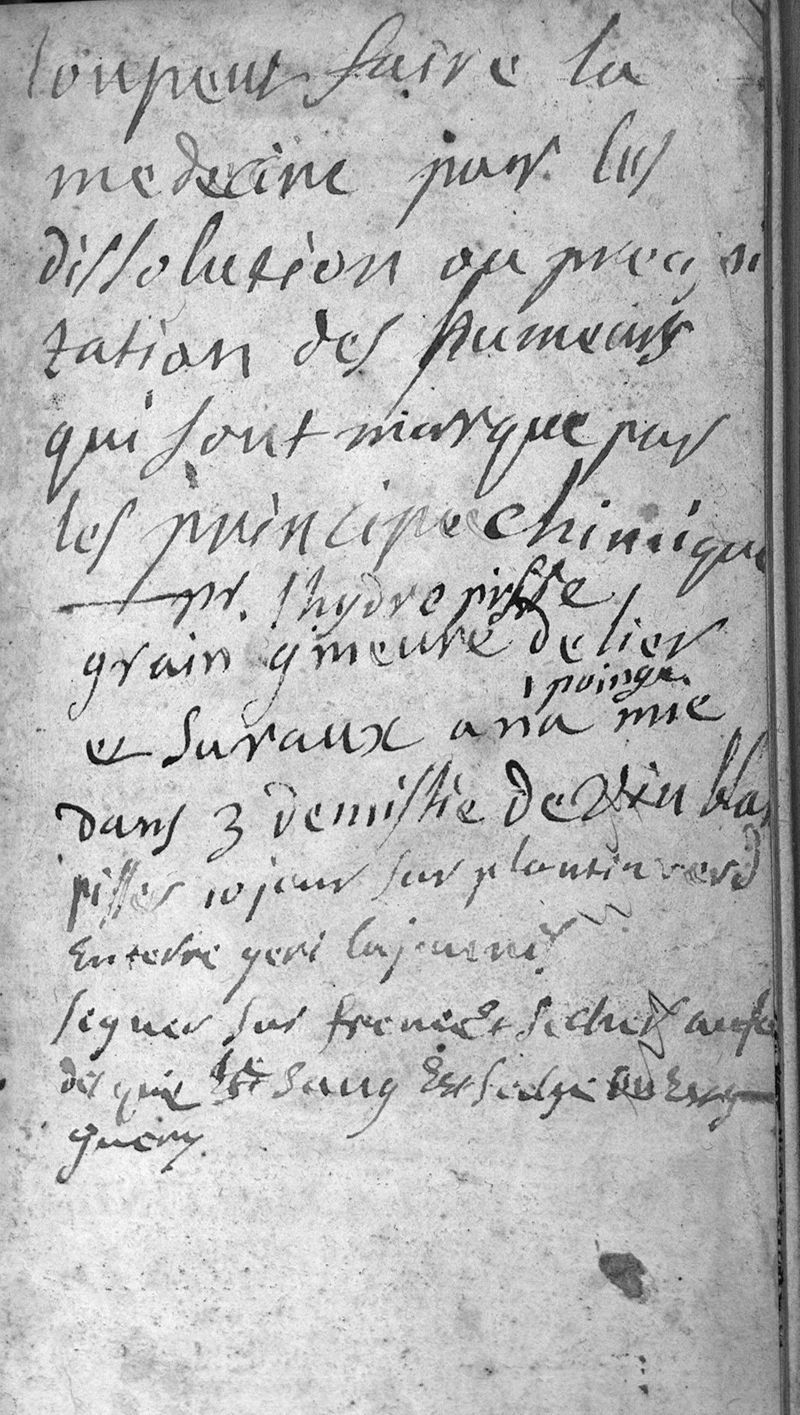 lonpeut faire la
medecine par les
dissolution ou preci
tation des humeurs
qui sont marque par
les principe chimique
pr. lhydropisie
grain meure de lier
1 poinge.
et suraux ana mie
dans 3 demistie de vin bla
pisser 10 jour sur plantin verd
en terre geri la
segner sur et secher
sang
guery